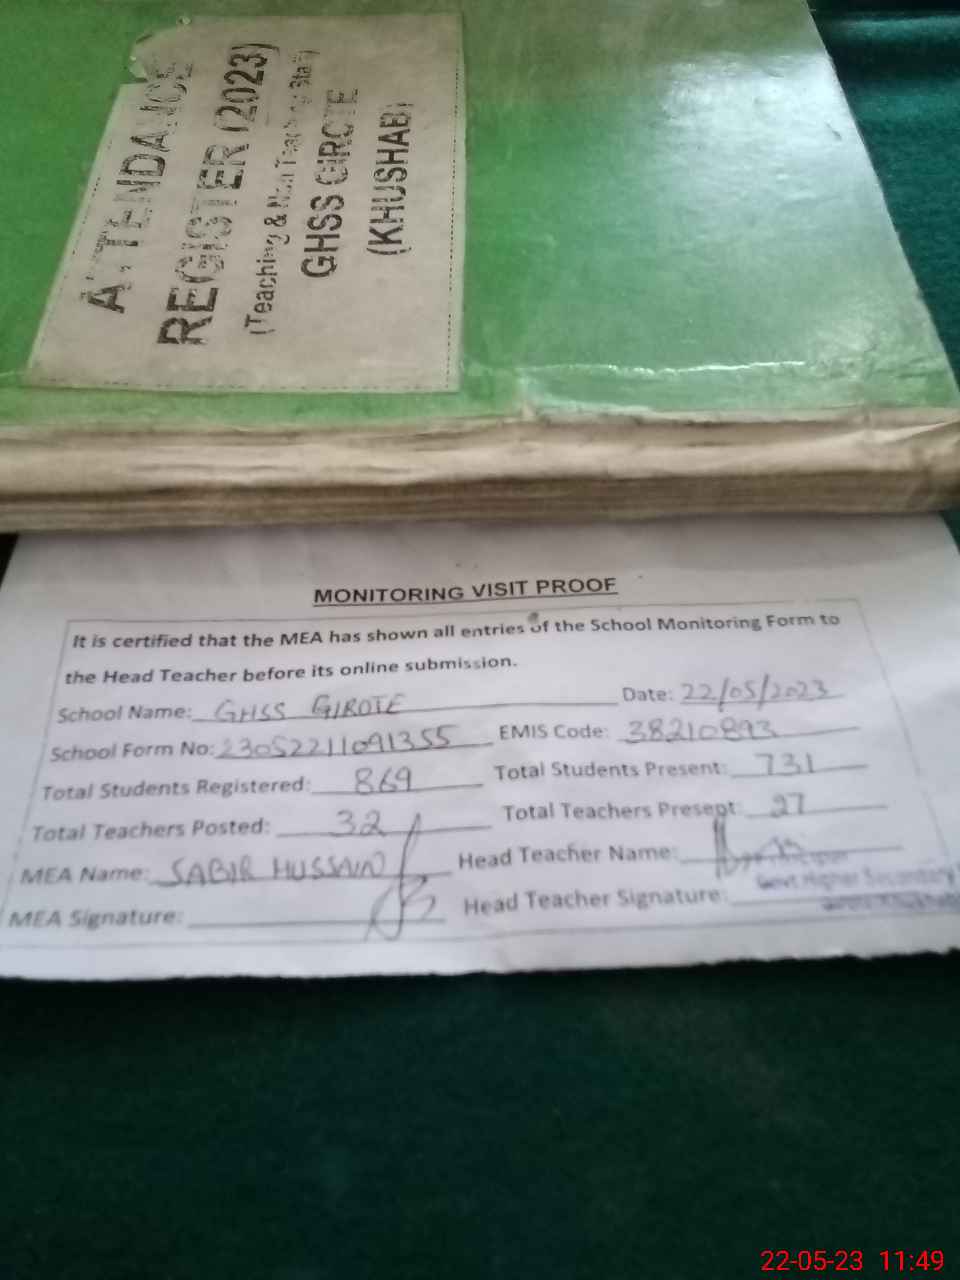 ATTENDANCE
REGISTER (2023)
(Teaching & Non Teaching Staff)
GHSS GIROTE
(KHUSHAB)
MONITORING VISIT PROOF
It is certified that the MEA has shown all entries of the School Monitoring Form to
the Head Teacher before its online submission.
School Name: GHSS GIROTE Date: 22/05/2023
School Form No: 23052211091355 EMIS Code: 38210893
Total Students Registered: 869 Total Students Present: 731
Total Teachers Posted: 32 Total Teachers Present: 27
MEA Name: SABIR HUSSAIN Head Teacher Name:
Principal
MEA Signature: Head Teacher Signature:
Govt. Higher Secondary
22-05-23 11:49